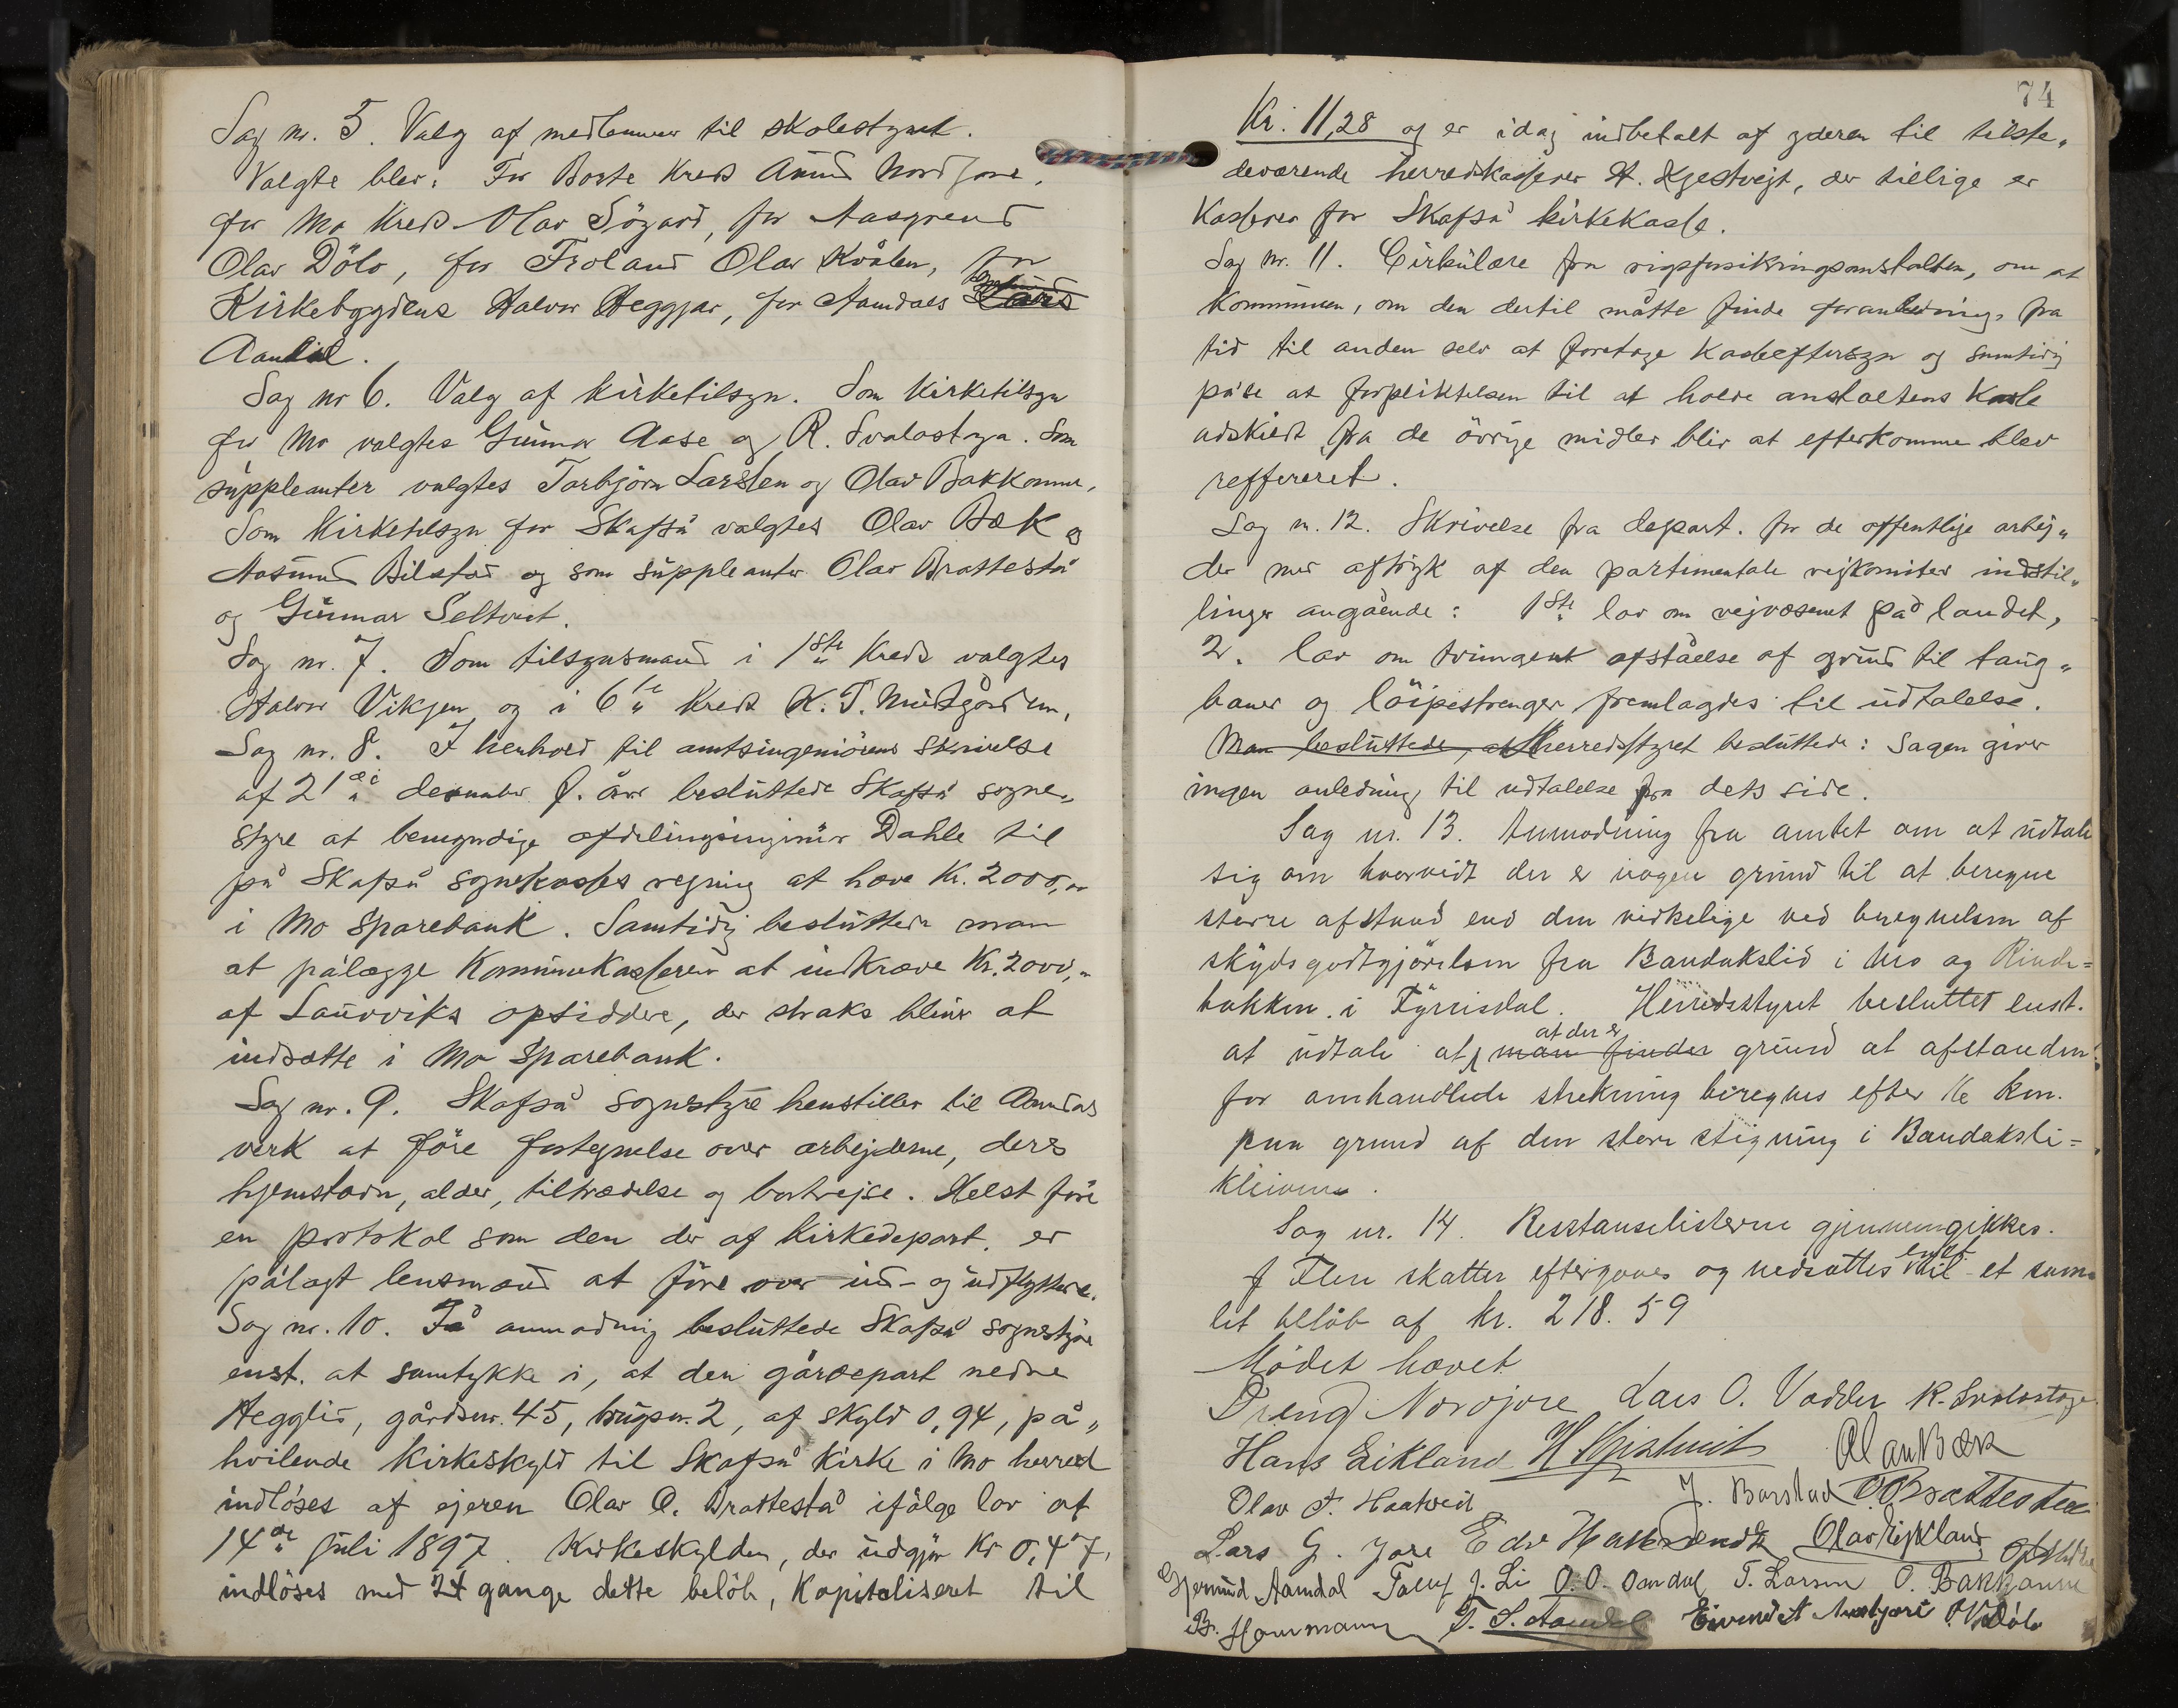 Sag nr. 5. Valg af medlemmer til skolestyret.
Valgte blev: For Borte Kreds Aanund Nordjore,
for Mo Kreds Olav Sögard, for Aasgrend
Olav Dölo, for Froland Olav Kvålen, for
Kirkebygdens Halvor Heggjar, for Aamdals
Aamdal.
Sag nr 6. Valg af kirketilsyn. Som Kirketilsyn
for Mo valgtes Gunnar Aase og R. Svalastoga. Som
suppleanter valgtes Torbjörn Larsen og Olav Bakkanne,
Som Kirketilsyn for Skafså valgtes Olav Bæk og
Aasmund Bilstad og som suppleanter Olav Brattestå
og Gunnar Seltveit.
Sag nr. 7. Som tilsynsmand i 1ste Kreds valgtes
Halvor Vikjen og i 6te Kreds K. T. Midtgården,
Sag nr. 8. I henhold til amtsingeniörens skrivelse
af 21de desember f. år besluttede Skafså sogne„
styre at bemyndige afdelingsingeniör Dahle til
på Skafså sognekasses regning at hæve Kr. 2000,„
i Mo Sparebank. Samtidig besluttede man
at pålægge Kommunekassereren at indkræve Kr. 2000,„
af Laurviks opsiddere, der straks bliver at
indsætte i Mo Sparebank.
Sag nr. 9. Skafså sognestyre henstiller til Aamdals
verk at före fortegnelse over arbejderne, deres
hjemstavn, alder, tiltrædelse og bortrejse. Helst före
en protokol som den der af Kirkedepart. er
pålagt lensmand at före over ind- og udflyttere.
Sag nr. 10. På anmodning besluttede Skafså sognestyre
enst. at samtykke i, at den gårdepart nedre
Hegglid, gårdsnr. 45, brugsnr. 2, af skyld 0,94, på„
hvilende Kirkeskyld til Skafså Kirke i Mo herred
indlöses af ejeren Olav O. Brattestå ifölge lov af
14de juli 1897. Kirkeskylden, der udgjör Kr 0,47,
indlöses med 24 gange dette belöb, Kapitaliseret til
74
Kr. 11,28 og er idag indbetalt af yderen til tilste„
deværende herredskasserer H. Kjestveit, der tillige er
Kasserer for Skafså kirkekasse.
Sag nr. 11. Cirkulære fra rigsforsikringsanstalten, om at
Kommunen, om den dertil måtte finde foranledning, fra
tid til anden selv at foretage Kasseeftersyn og samtidig
påse at forpliktelsen til at holde anstaltens Kasse
adskildt fra de övrige midler blir at efterkomme blev
refereret.
Sag nr. 12. Skrivelse fra depart. for de offentlige arbej„
der med aftryk af den partimentale vejkomites indstil„
linger angående: 1ste lov om vejvæsenet på landet,
2. lov om tvungent afståelse af grund til taug„
baner og löipestrenger fremlagdes til udtalelse.
Man besluttede, at herredsstyret besluttede: Sagen giver
ingen anledning til udtalelse fra dets side.
Sag nr. 13. Anmodning fra amtet om at udtale
sig om hvorvidt der er nogen grund til at beregne
större afstand end den virkelige ved beregnelsen af
skydsgodtgjörelsen fra Bandakslid i Mo og Rinde=
bakken i Fyrrisdal. Herredsstyret besluttet enst.
at der er
at udtale at man finder grund at afstanden
for omhandlede strekning beregnes efter 16 km.
paa grund af den store stigning i Bandaksli=
kleiven.
Sag nr. 14. Resstanselisterne gjennemgikkes.
Flere skatter eftergaves og nedsattes til et sam=
let belöb af kr. 218.59
Mödet hævet
Dreng Nordjore Lars O. Vadder R. Svalastoga
Hans Eikland H Kjestveit Olav Bæk
Olav A. Haatveit J. Barstad O Brattestå
Lars G. Jore Edv Olav Eikland
Gjermund Aamdal J. Li O. O. Aamdal T. Larsen O. Bakkanne
Br. Hansmann T. S. Aamdal Eivind A O. Dölo